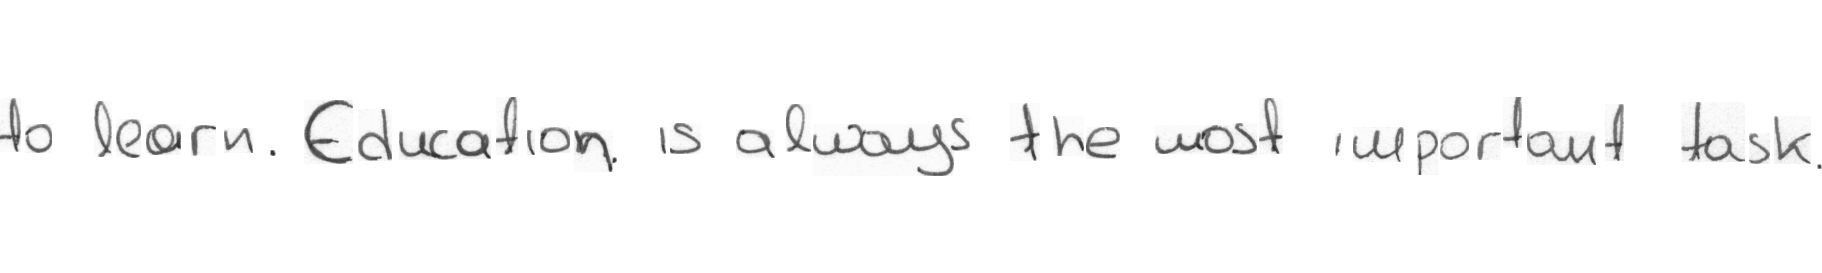 to learn. Education is always the most important task.